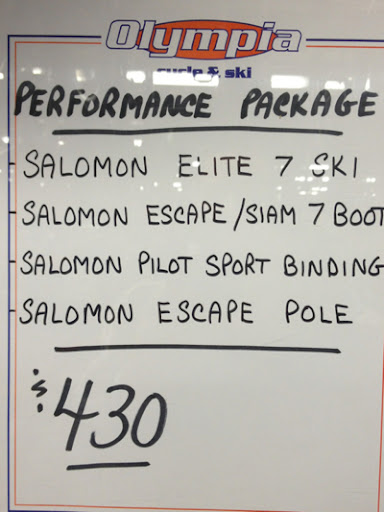 Olympia
cycle & ski
PERFORMANCE PACKAGE
- SALOMON ELITE 7 SKI
- SALOMON ESCAPE/SIAM 7 BOOT
- SALOMON PILOT SPORT BINDING
- SALOMON ESCAPE POLE
$430